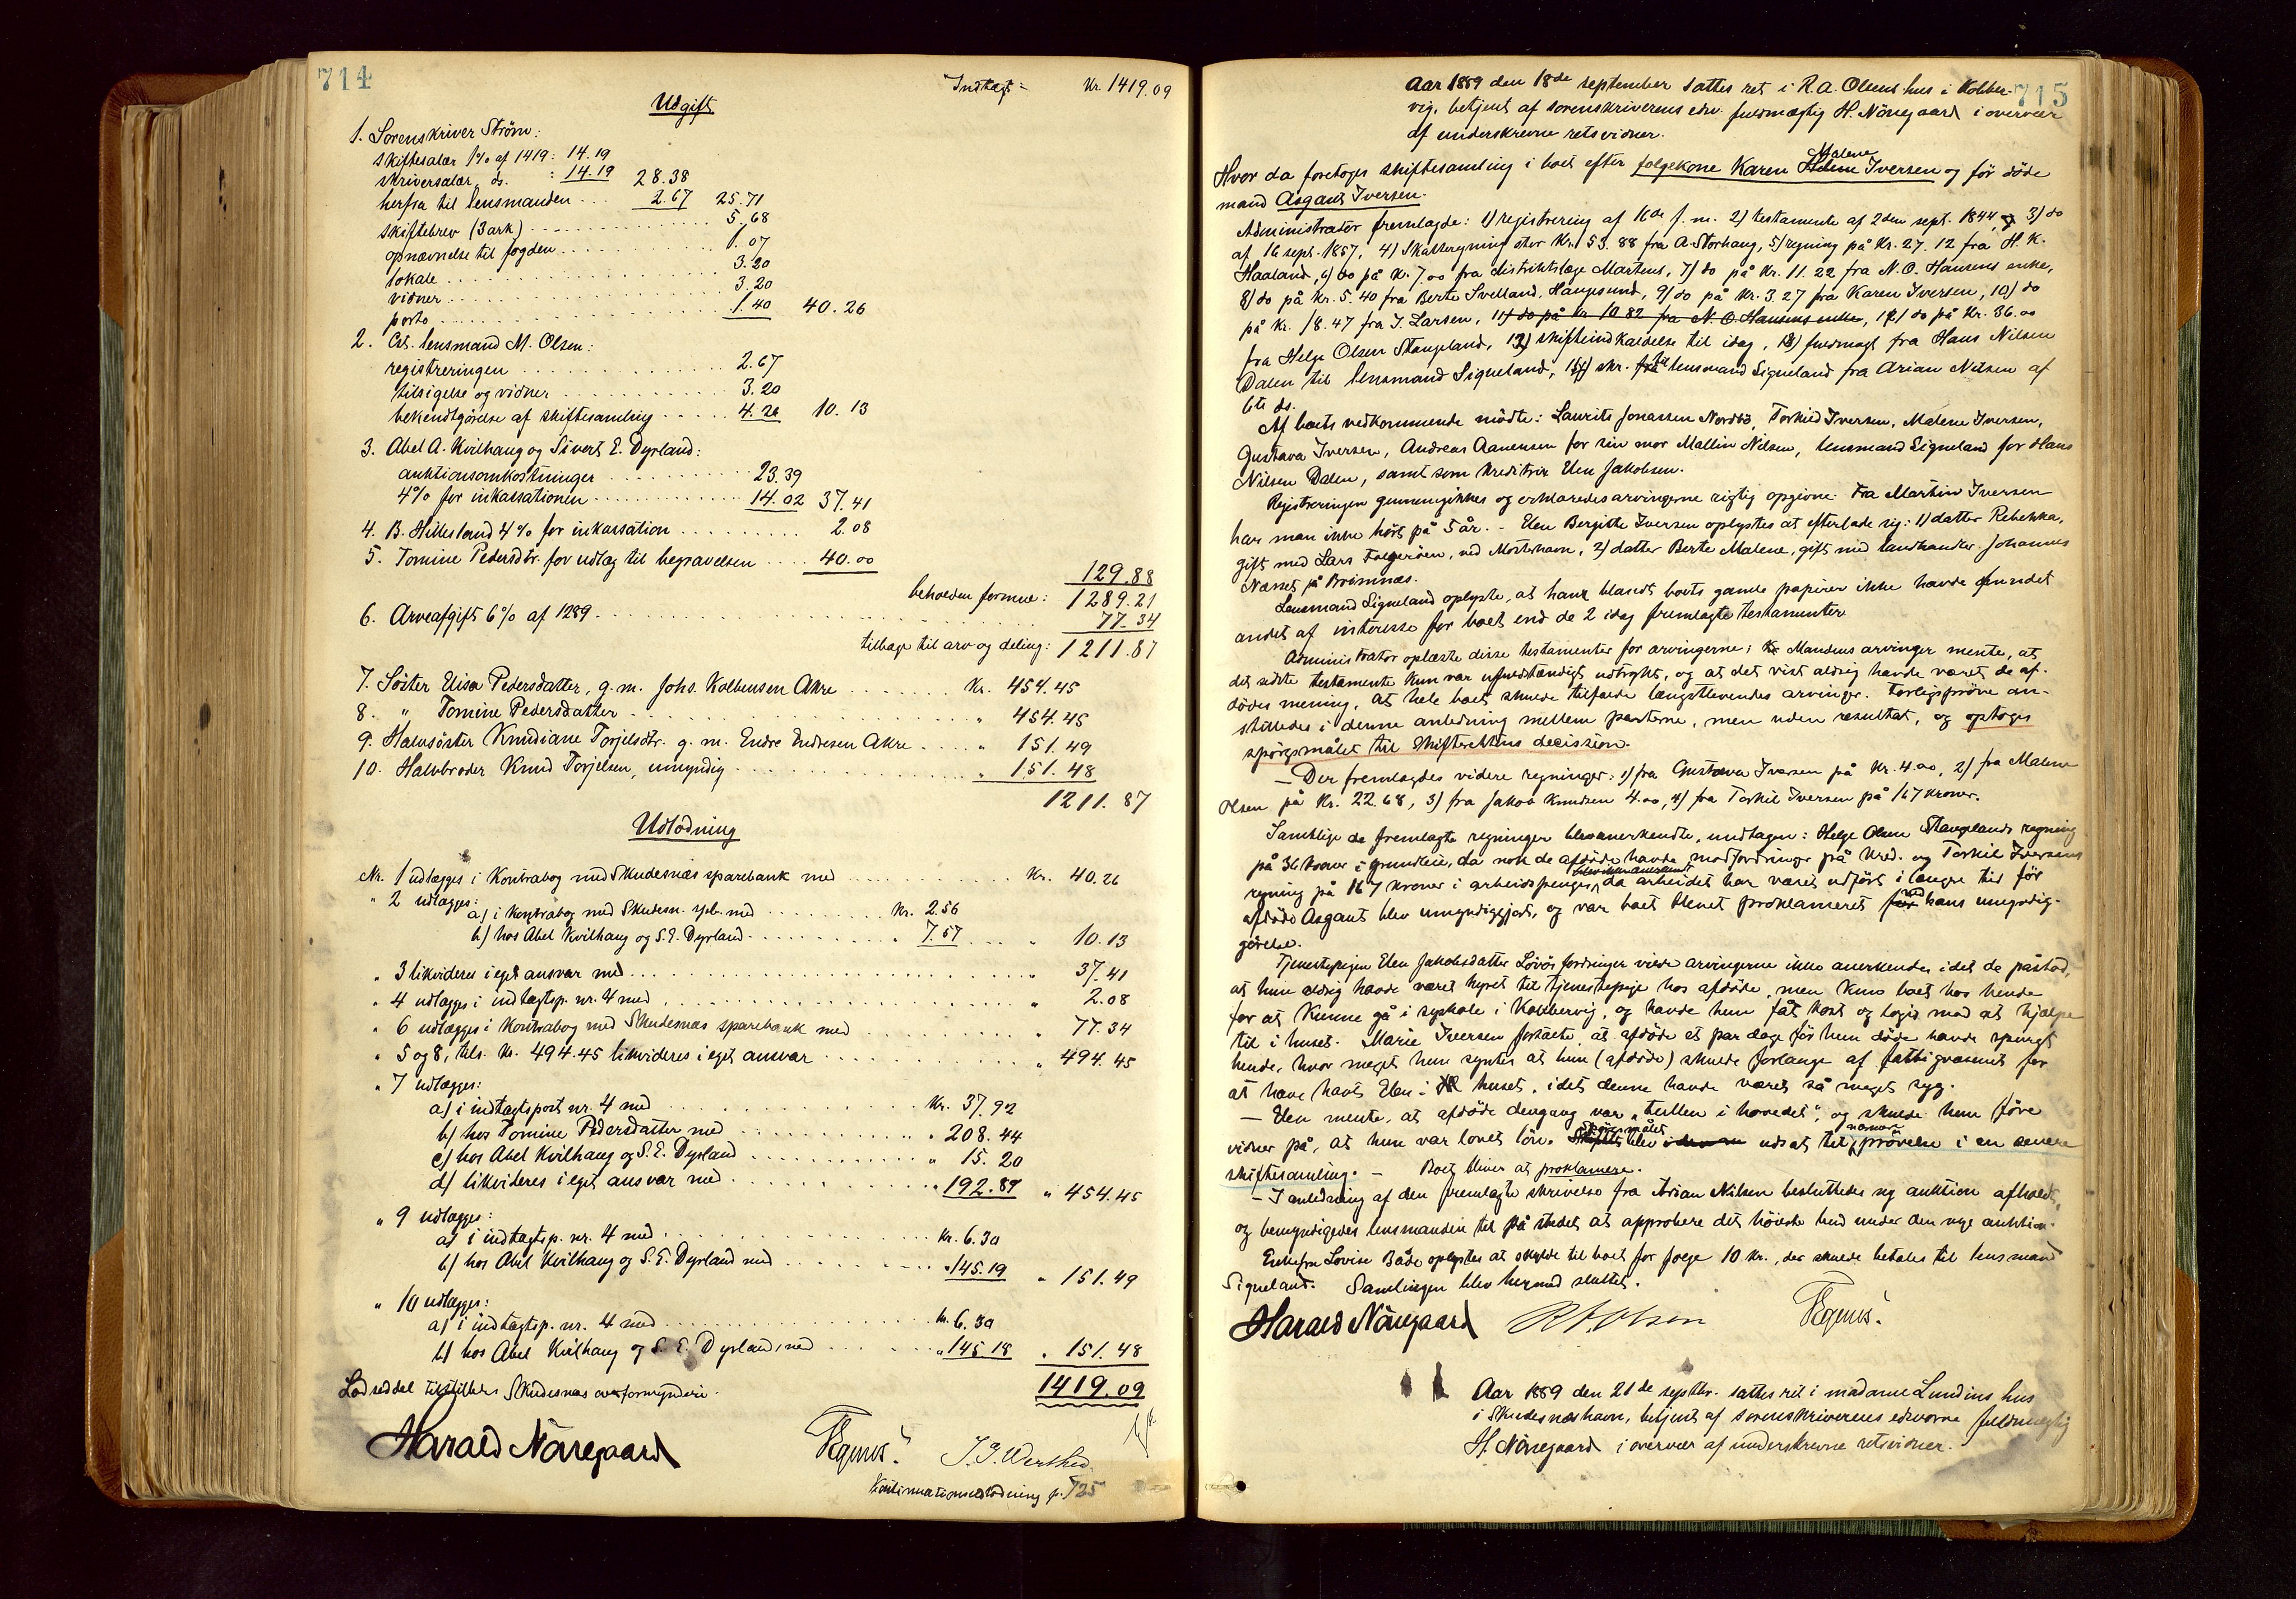 714
Indtægt = Kr. 1419.09
Udgift
1. Sorenskriver Strøm:
skiftesalær 1% af 1419: 14.19
skriversalær, ds. : 14.19 28.38
herfra til lensmanden ... 2.67 25.71
skiftebrev (3 ark) ... 5.68
opnævnelse til fogden ... 1.07
lokale ... 3.20
vidner ... 3.20
porto ... 1.40 40.26
2. Cst. lensmand M. Olsen:
registreringen ... 2.67
tilsigelse og vidner ... 3.20
bekendtgörelse af skiftesamling ... 4.26 10.13
3. Abel A. Kvilhaug og Sivert E. Dyrland:
auktionsomkostninger ... 23.39
4% for inkassationen ... 14.02 37.41
4. B. Hillesland 4% for inkassation ... 2.08
5. Tomine Pedersdtr. for udlæg til begravelsen ... 40.00
129.88
beholden formue: 1289.21
6. Arveafgift 6% af 1289 ... 77.34
tilbage til arv og deling: 1211.87
7. Söster Elisa Pedersdatter, g. m. Johs. Kolbensen Akre ... Kr. 454.45
8. " Tomine Pedersdatter ... " 454.45
9. Halvsöster Knudiane Torjelsdtr. g. m. Endre Endresen Akre ... " 151.49
10. Halvbroder Knud Torjelsen, umyndig ... " 151.48
1211.87
Udlodning
Nr. 1 udlægges i Kontrabog med Skudesnæs sparebank med ... Kr. 40.26
" 2 udlægges:
a) i kontrabog med Skudesn. spb. med ... Kr. 2.56
b) hos Abel Kvilhaug og S. E. Dyrland ... " 7.57 ... " 10.13
" 3 likvideres i eget ansvar med ... " 37.41
" 4 udlægges i indtægtsp. nr. 4 med ... " 2.08
" 6 udlægges i Kontrabog med Skudesnæs sparebank med ... " 77.34
" 5 og 8, tils. Kr. 494.45 likvideres i eget ansvar ... " 494.45
" 7 udlægges:
a) i indtægtspost nr. 4 med ... Kr. 37.92
b) hos Tomine Pedersdatter med ... " 208.44
c) hos Abel Kvilhaug og S. E. Dyrland ... " 15.20
d) likvideres i eget ansvar med ... " 192.89 " 454.45
" 9 udlægges:
a) i indtægtsp. nr. 4 med ... Kr. 6.30
b) hos Abel Kvilhaug og S. E. Dyrland med ... " 145.19 " 151.49
" 10 udlægges:
a) i indtægtsp. nr. 4 med ... Kr. 6.30
b) hos Abel Kvilhaug og S. E. Dyrland med ... " 145.18 " 151.48
Lodseddel tilstilles Skudesnæs overformynderi. 1419.09
Harald Nöregaard
Kontinuationsudlodning p. 725
715
Aar 1889 den 18de september sattes ret i R. A. Olsens hus i Kobber-
vig, betjent af sorenskriverens edsv. fuldmægtig H. Nöregaard i overvær
af underskrevne retsvidner.
Hvor da foretoges skiftesamling i boet efter folgekone Karen Helene Malene Iversen og för döde
mand Asgaut Iversen.
Administrator fremlagde: 1) registrering af 16de f. m. 2) testamente af 2den sept. 1844, 3) do
af 16 sept. 1857, 4) Skatteregning stor Kr. 53.88 fra A. Storhaug, 5) regning på Kr. 27.12 fra H. K.
Haaland, 6) do på Kr. 7.00 fra distriktslæge Martens, 7) do på Kr. 11.22 fra N. O. Hansens enke,
8) do på Kr. 5.40 fra Berte Svelland, Haugesund, 9) do på Kr. 3.27 fra Karen Iversen, 10) do
på Kr. 18.47 fra J. Larsen, 11) do på Kr. 10.82 fra N. O. Hansens enke, 11) do på Kr. 36.00
fra Helge Olsen Stangeland, 12) skifteindkaldelse til idag, 13) fuldmagt fra Hans Nilsen
Dalen til lensmand Signeland, 14) skr. fra til lensmand Signeland fra Arian Nilsen af
6te ds.
Af boets vedkommende mödte: Laurits Jonassen Nordbö, Torkild Iversen, Malene Iversen,
Gustava Iversen, Andreas Aanensen for sin mor Mallin Nilsen, lensmand Signeland for Hans
Nilsen Dalen, samt som kreditrix Elen Jakobsen.
Registreringen gennemgikkes og erklæredes arvingerne rigtig opgivne. Fra Martin Iversen
har man ikke hört på 5 år. - Elen Bergitte Iversen oplystes at efterlade sig: 1) datter Rebekka,
gift med Lars, ved Mosterhavn, 2) datter Berte Malene, gift med landhandler Johannes
Næsset på Bremnæs.
Lensmand Signeland oplyste, at han blandt boets gamle papirer ikke havde fundet
andet af interesse for boet end de 2 idag fremlagte testamenter.
Administrator oplæste disse testamenter for arvingerne; Mandens arvinger mente, at
det sidste testamente kun var ufuldstændigt udtrykt, og at det vist aldrig havde været de af-
dödes mening, at hele boet skulde tilfalde længstlevendes arvinger. Forligspröve an-
stilledes i denne anledning mellem parterne, men uden resultat, og optoges
spörgsmålet til Skifterettens decission.
- Der fremlagdes videre regninger: 1) fra Gustava Iversen på Kr. 4.00, 2) fra Malene
Olsen på Kr. 22.68, 3) fra Jakob Knudsen 4.00, 4) fra Torkil Iversen på 167 kroner.
Samtlige de fremlagte regninger blev anerkendte, undtagen: Helge Olsen Stangelands regning
på 36 kroner i grundleie, da nok de afdöde havde modfordringer på kred. og Torkil Iversens
regning på 167 kroner i arbeidspenge, blev ikke anerkendt da arbeidet har været udfört i længre tid för
afdöde Asgaut blev umyndiggjort, og var boet blevet proklameret for ved hans umyndig-
görelse.
Tjenestepigen Elen Jakobsdatter Lövös fordringer vilde arvingerne ikke anerkende, idet de påstod,
at hun aldrig havde været hyret til tjenestepige hos afdöde, men kun boet hos hende
for at kunne gå i syskole i Kobbervig, og havde hun fåt kost og logis mod at hjælpe
til i huset. Marie Iversen fortalte, at afdöde et par dage för hun döde havde spurgt
hende, hvor meget hun syntes at hun (afdöde) skulde forlange af fattigvæsenet for
at have havt Elen i huset, idet denne havde været så meget syg.
- Elen mente, at afdöde dengang var "tullen i hovedet", og skulde hun före
vidner på, at hun var lovet lön. Spörsmålet blev udsat til nærmere prövelse i en senere
skiftesamling. - Boet bliver at proklamere.
- I anledning af den fremlagte skrivelse fra Arian Nilsen besluttedes ny auktion afholdt,
og bemyndigedes lensmanden til på stedet at approbere det höieste bud under den nye auktion.
Enkefru Lovise Både oplystes at skylde til boet for foege 10 Kr., der skulde betales til lensmand
Signeland. Samlingen blev hermed sluttet.
Harald Nöregaard R A Olsen
Aar 1889 den 21de septbr. sattes ret i madame Lundins hus
i Skudesnæshavn, betjent af sorenskriverens edsvorne fuldmægtig
H. Nöregaard i overvær af underskrevne retsvidner.